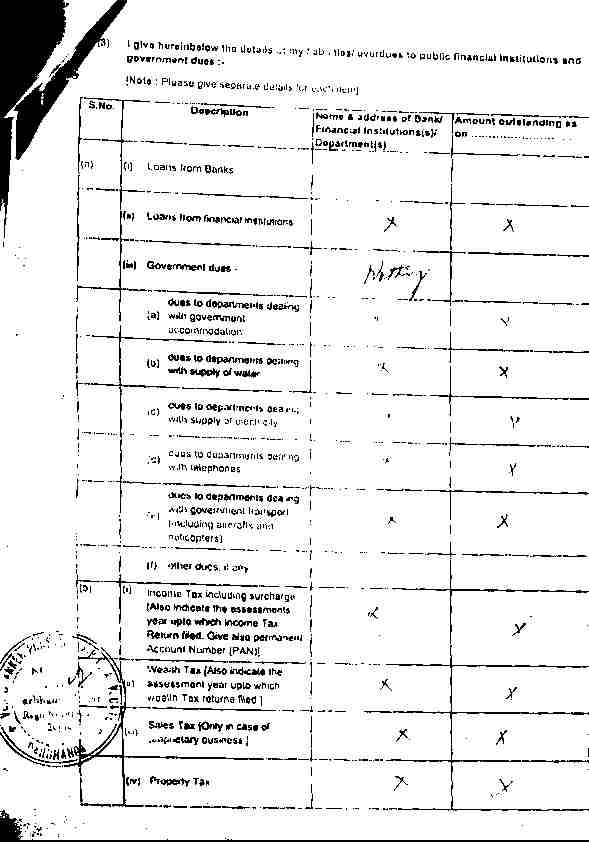 (3) I give hereinbelow the details of my liabilities/ overdues to public financial institutions and
government dues :-
[Note : Please give separate details for each item]
S.No. Description Name & address of Bank/ Financial Institutions(s)/ Department(s) Amount outstanding as on ....................
(a) (i) Loans from Banks
(ii) Loans from financial institutions X X
(iii) Government dues - Nothing
(a) dues to departments dealing
with government
accommodation
(b) dues to departments dealing
with supply of water X
(c) dues to departments dealing
with supply of electricity
(d) dues to departments dealing
with telephones
(e) dues to departments dealing
with government transport
(including aircrafts and
helicopters) X X
(f) other dues, if any
(b) (i) Income Tax including surcharge
[Also indicate the assessments
year upto which Income Tax
Return filed. Give also permanent
Account Number (PAN)] X
(ii) Wealth Tax [Also indicate the
assessment year upto which
wealth Tax returne filed ] X X
(iii) Sales Tax [Only in case of
proprietary business ] X X
(iv) Property Tax X X